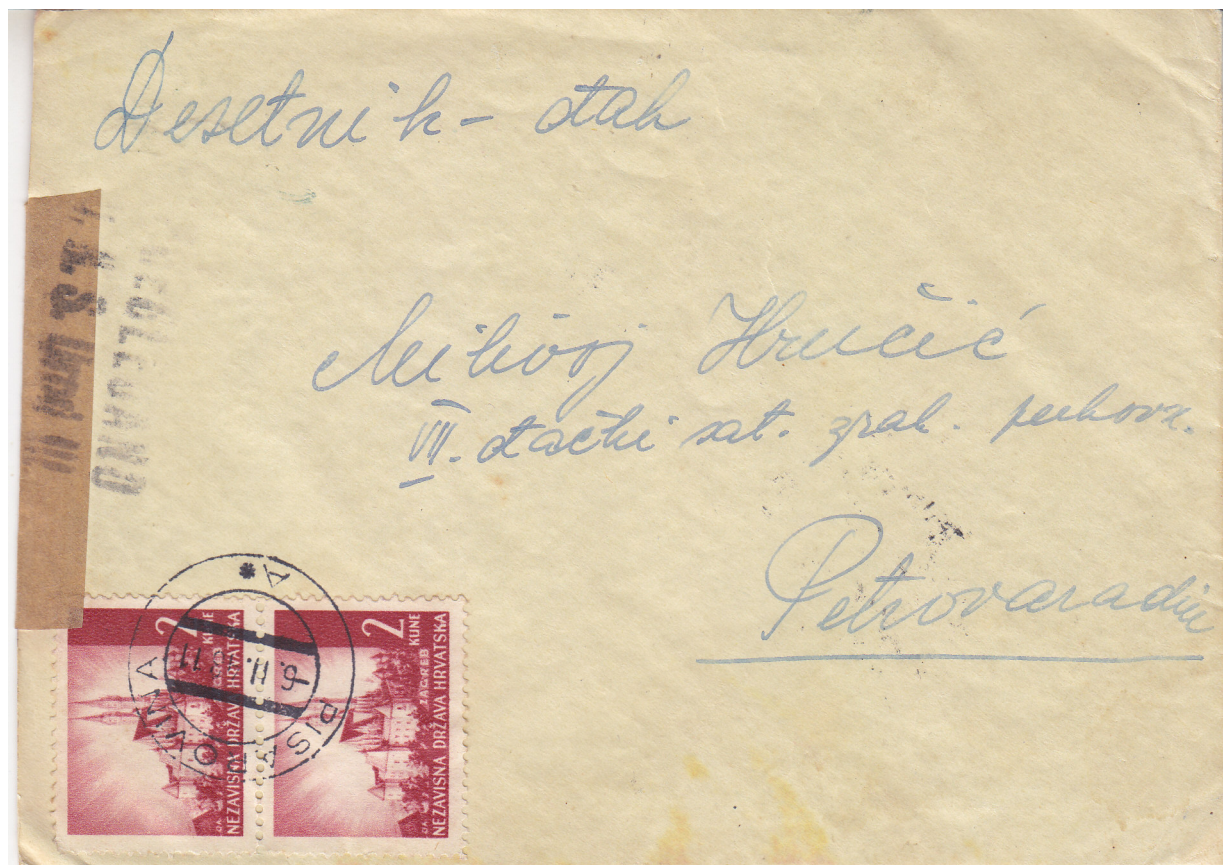 Desetnik - đak
Milivoj Hručić
VII. đački sat. zrak.
Petrovaradin
PREGLEDANO
2
KUNE
ZAGREB
NEZAVISNA DRŽAVA HRVATSKA
2
KUNE
ZAGREB
NEZAVISNA DRŽAVA HRVATSKA
6. II.
11